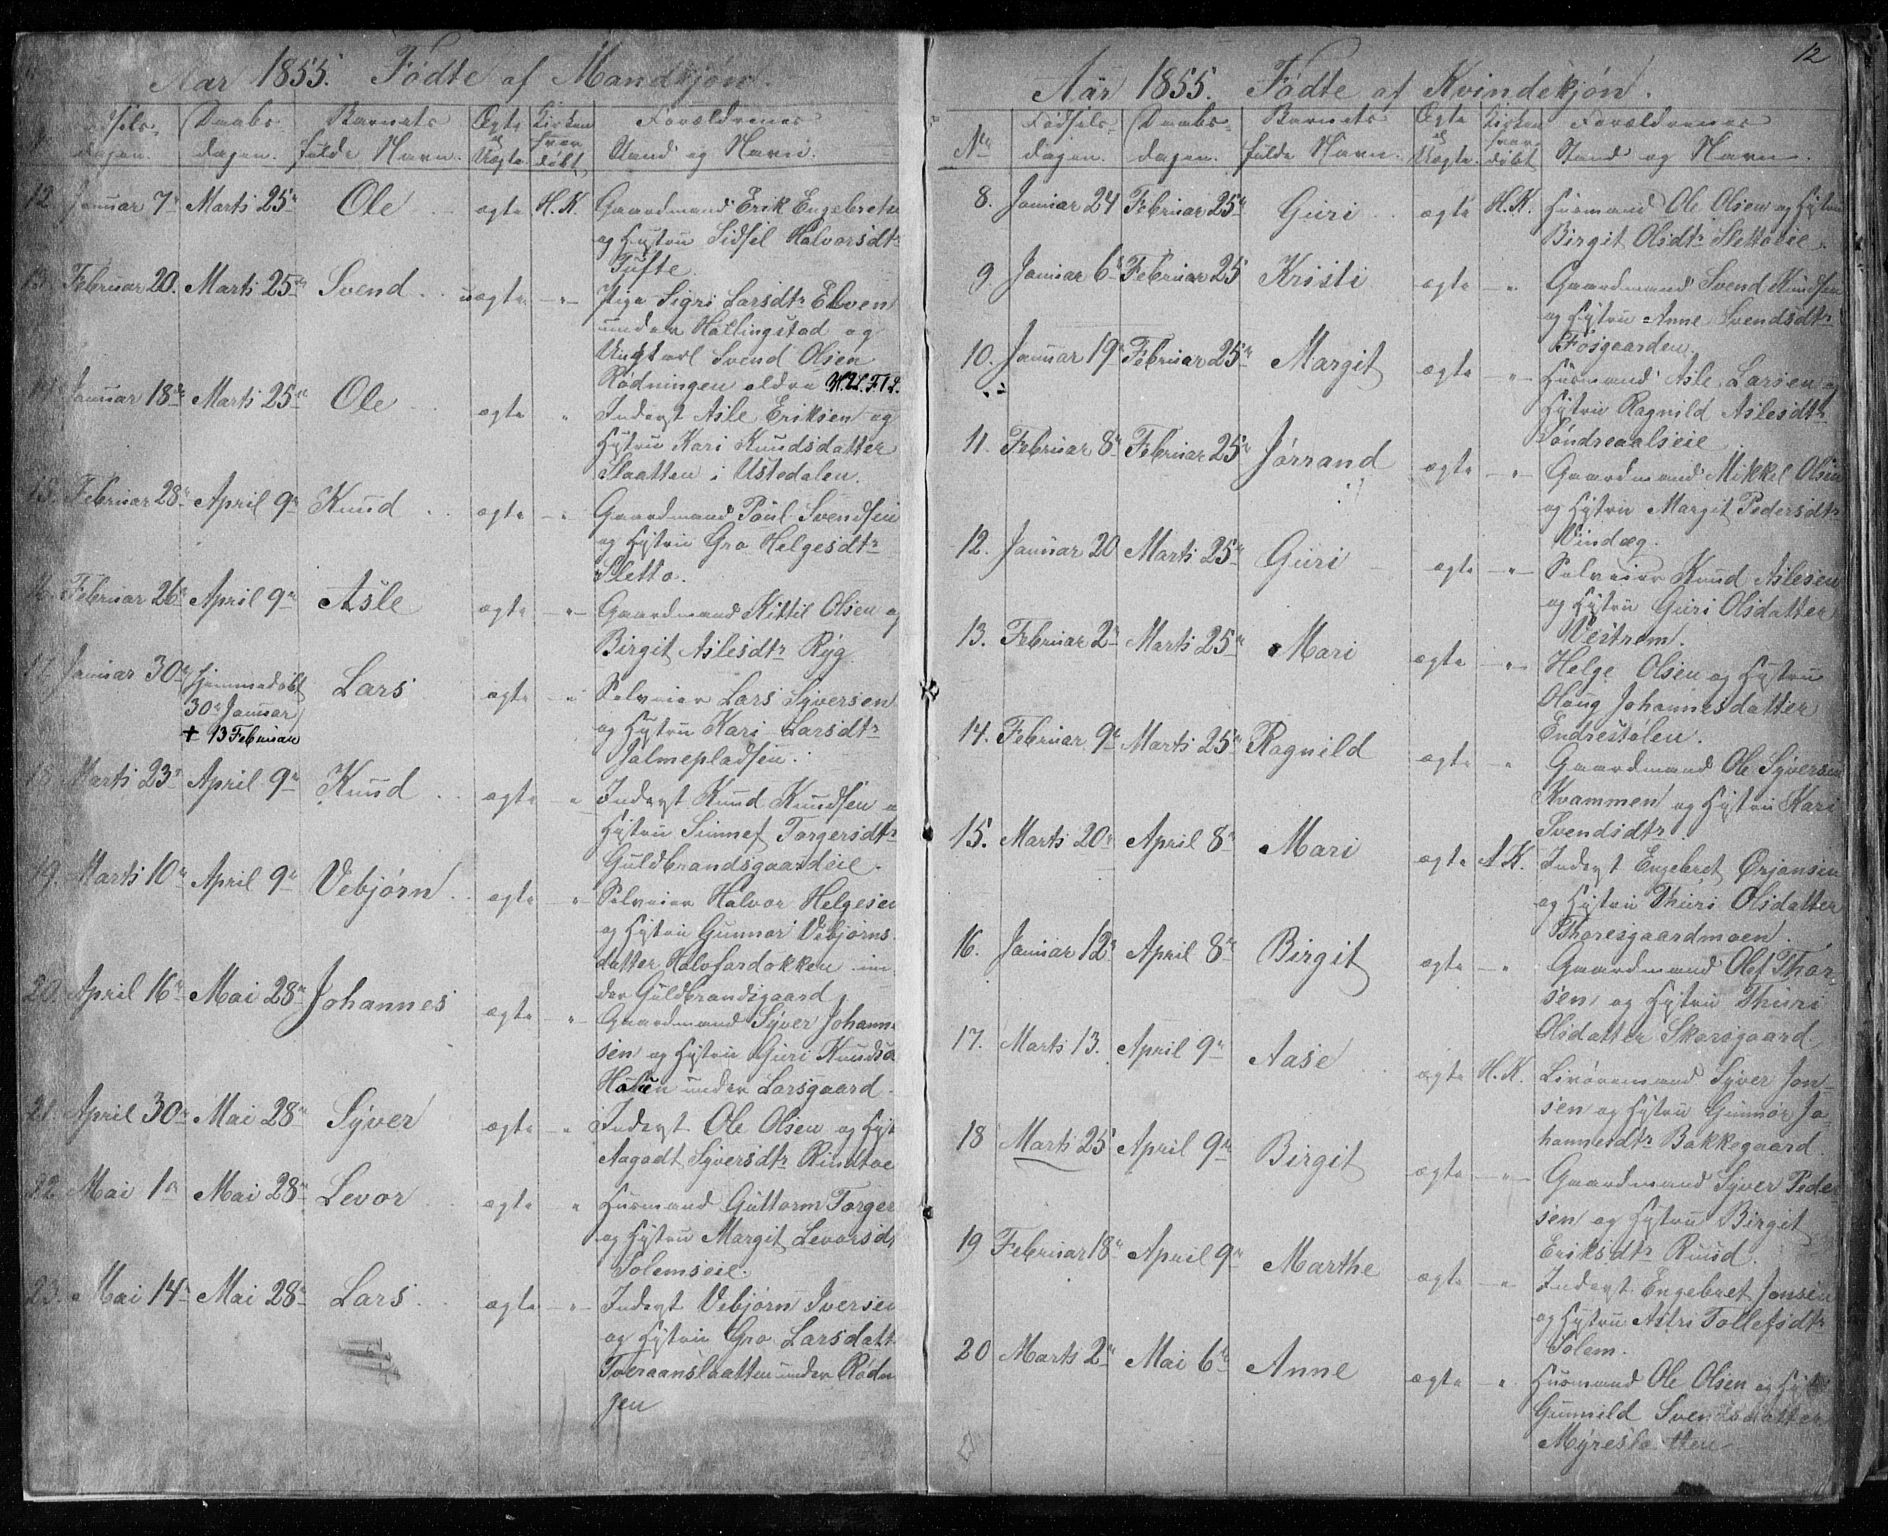 Aar 1855. Fødte af Mandkjøn.
Fødsels-dagen. Daabs-dagen. Barnets fulde Navn. Ægte el Uægte Kirken hvor døbt Forældrenes Stand og Navn.
12. Januar 7de Marts 25de Ole ægte H.K. Gaardmand Erik Engebrets
og Hustru Sidsel Halvorsdtr
Tufte.
13. Februar 20. Marts 25de Svend uægte - " - Pige Sigri Larsdtr Elven
under Hallingstad og
Ungkarl Svend Olsen
Rødningen eldre
14. Januar 18de Marts 25de Ole ægte " Inderst Asle Eriksen og
Hustru Kari Knudsdatter
Slaatten i Ustedalen.
15. Februar 28de April 9de Knud ægte - " Gaardmand Poul Svendsen
og Hustru Gro Helgesdtr
Sletto.
16. Februar 26de April 9de Asle ægte " Gaardmand Kittil Olsen og
Birgit Aslesdtr Ryg
17. Januar 30de Hjemmedøbt Lars ægte " Selveier Lars Syversen
30te Januar og Hustru Kari Larsdtr
† 13 Februar Jalmepladsen.
18. Marts 23de April 9de Knud ægte " Inderst Knud Knudsen o
Hustru Sinnef Torgersdtr
Guldbrandsgaardeie.
19. Marts 10de April 9de Vebjørn ægte " Selveier Halvor Helgesen
og Hustru Gunnor Vebjørns
datter Halvfardokken un
der Guldbrandsgaard
20. April 16de Mai 28de Johannes ægte - " Gaardmand Syver Johanne
sen og Hustru Guri Knudsd
under Larsgaard
21. April 30te Mai 28de Syver ægte " Inderst Ole Olsen og Hust
Aagodt Syversdtr
22. Mai 1ste Mai 28de Levor ægte " Husmand Guttorm Torger
og Hustru Margit Levorsdt
Solemseie.
23. Mai 14de Mai 28de Lars ægte - " - Inderst Vebjørn Iversen
og Hustru Gro Larsdatt
Tveraanslaatten under Rødn
gen
12
Aar 1855. Fødte af Kvindekjøn.
No Fødsels-dagen. Daabs-dagen. Barnets fulde Navn. Ægte el Uægte. Kirken hvor døbt Forældrenes Stand og Navn.
8. Januar 24 Februar 25de Guri ægte H.K. Husmand Ole Olsen og Hustru
Birgit Olsdtr Slettoeie.
9. Januar 6te Februar 25 Kristi ægte - " Gaardmand Svend Knudsen
og Hustru Anne Svendsdtr
Fosgaarden.
10. Januar 19de Februar 25de Margit ægte - " - Husmand Asle Larsen og
Hustru Ragnild Aslesdtr
Søndreaalseie
11. Februar 8de Februar 25de Jørrand ægte - " Gaardmand Mikkel Olsen
og Hustru Margit Pedersdtr
Vindæg.
12. Januar 20 Marts 25de Guri ægte - " - Selveier Knud Aslesen
og Hustru Guri Olsdatter
Vestrom.
13. Februar 2de Marts 25de Mari ægte - " - Helge Olsen og Hustru
Olaug Johannesdatter
Endrestølen.
14. Februar 9de Marts 25de Ragnild ægte " Gaardmand Ole Syversen
Kvammen og Hustru Kari
Svendsdtr
15. Marts 20de April 8de Mari ægte A.K. Inderst Engebret Ørjansen
og Hustru Thuri Olsdatter
Thoresgaardmoen.
16. Januar 12te April 8de Birgit ægte " Gaardmand Olef Thor
sen og Hustru Thuri
Olsdatter Skarsgaard
17. Marts 13. April 9de Aase ægte H.K. Livøremand Syver Jon-
sen og Hustru Gunnor Jo-
hannesdtr Bakkegaard
18 Marts 25 April 9de Birgit ægte - " - Gaardmand Syver Peder
sen og Hustru Birgit
Eriksdtr Ruud.
19 Februar 18de April 9de Marthe ægte - " Inderst Engebret Jonsen
og Hustru Astri Tollefsdtr
Solem.
20 Marts 2de Mai 6te Anne ægte - " Husmand Ole Olsen og Hust
Gunnild Svendsdatter
Myreslaatten